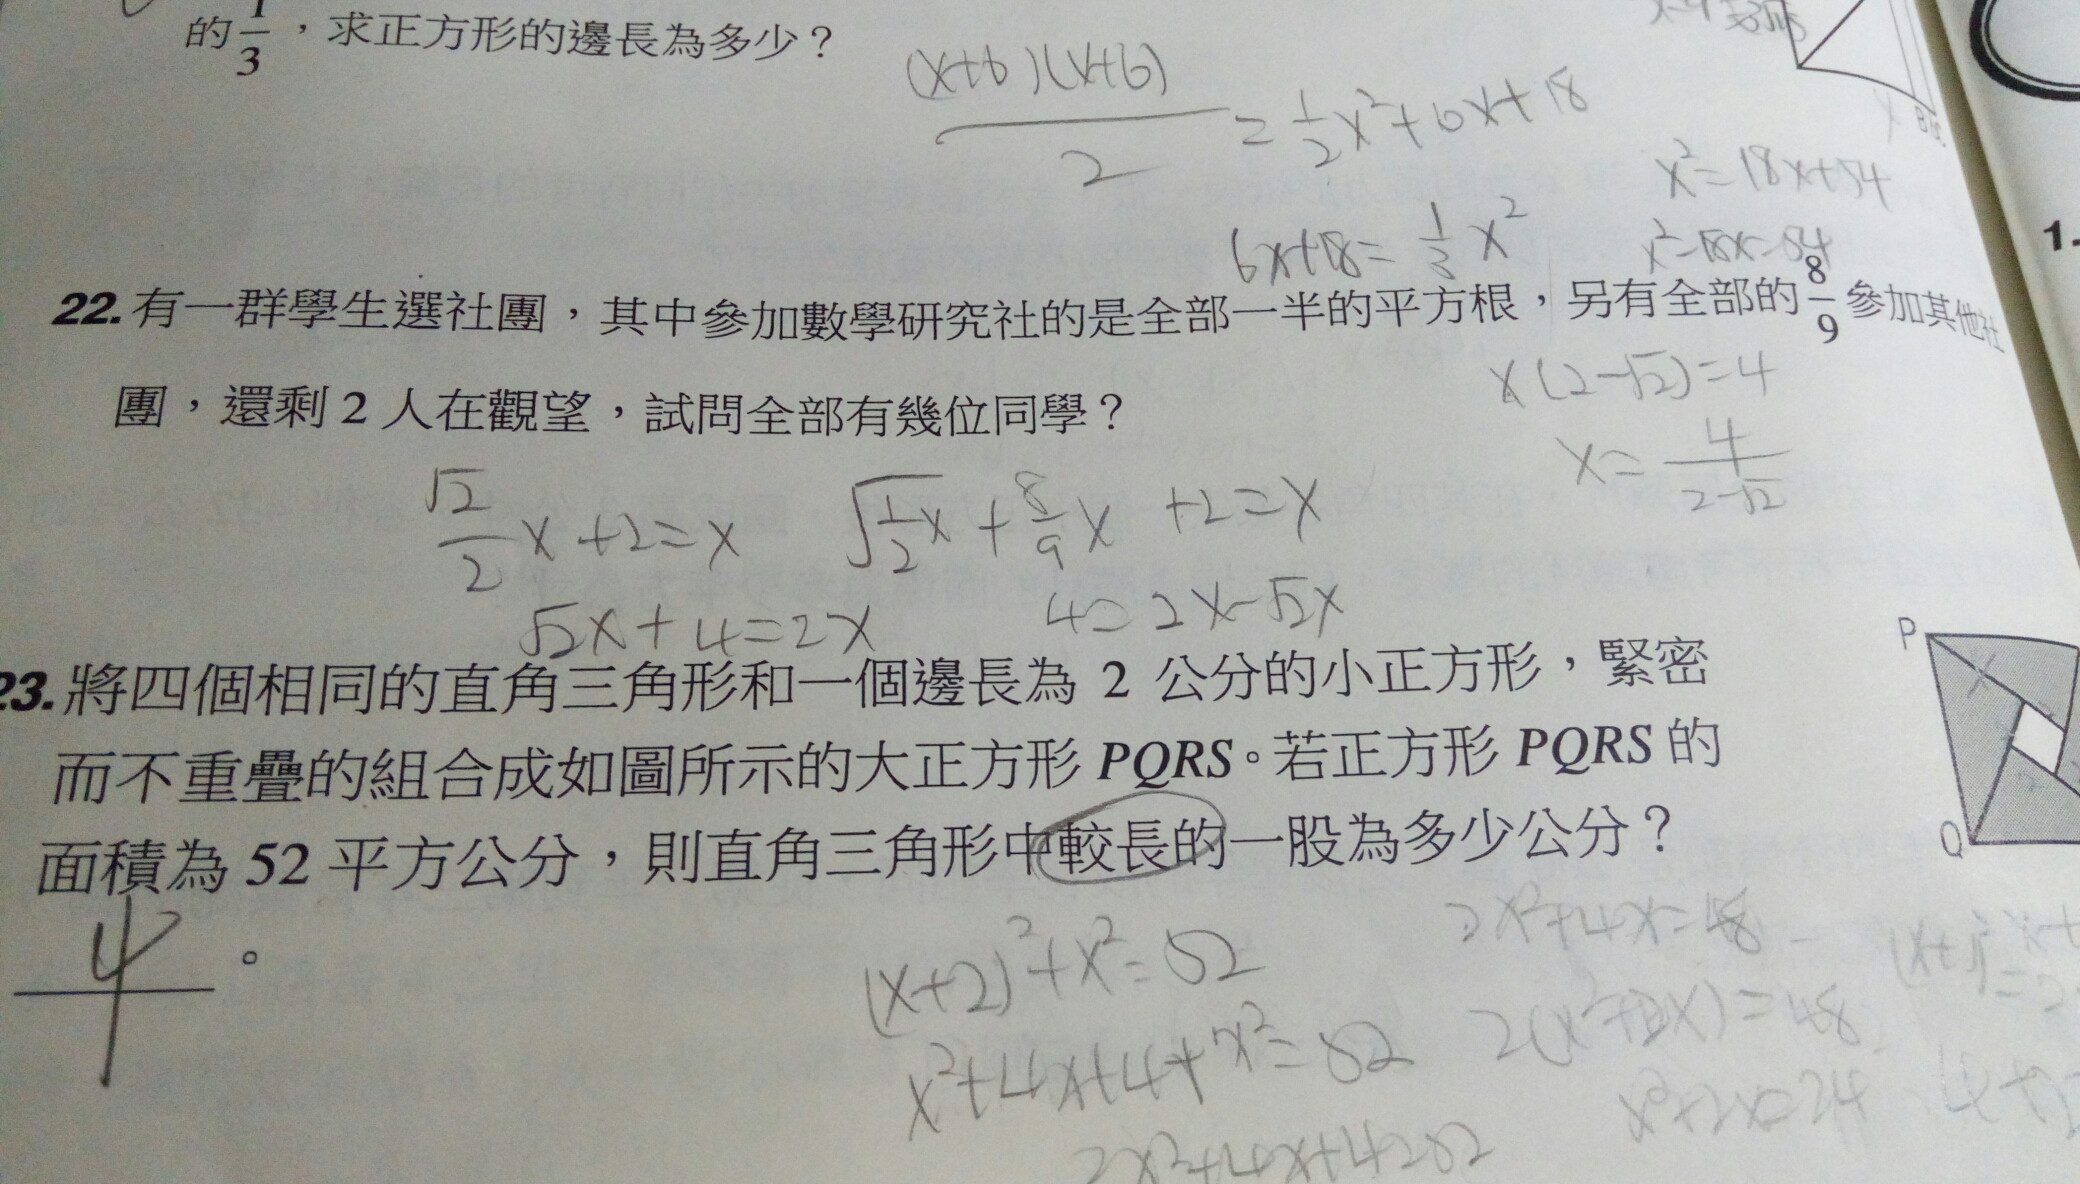 的1/3，求正方形的邊長為多少？
(x+6)(x+6)/2 = 1/2x²+6x+18
x²=18x+54
6x+18=1/3x²
x²-18x=54
22.有一群學生選社團，其中參加數學研究社的是全部一半的平方根，另有全部的8/9參加其他社
團，還剩2人在觀望，試問全部有幾位同學？
x(2-√2)=4
x=4/(2-√2)
√2/2x+2=x
√(1/2x)+8/9x+2=x
√2x+4=2x
4=2x-√2x
P
23.將四個相同的直角三角形和一個邊長為 2 公分的小正方形，緊密
而不重疊的組合成如圖所示的大正方形 PQRS。若正方形 PQRS 的
面積為 52 平方公分，則直角三角形中較長的一股為多少公分？
Q
4。
(x+2)²+x²=52
2x²+4x=48
x²+4x+4+x²=52
x²+2x=24
1.